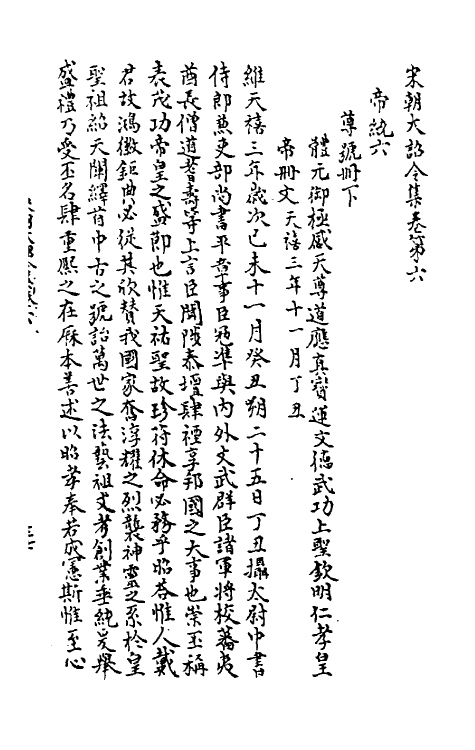 宋朝大詔令集卷第六
帝統六
尊號冊下
體元御極感天尊道應真寳運文德武功上聖欽明仁孝皇
帝冊文天禧三年十一月丁丑
維天禧三年歲次己未十一月癸丑朔二十五日丁丑攝太尉中書
侍郎兼吏部尚書平章事臣冦準與內外文武群臣諸軍將校蕃夷
酋長僧道耆壽等上言臣聞陟泰壇肆禋享邦國之大事也崇丕稱
表茂功帝皇之盛節也惟天祐聖故珍符休命必務乎昭荅惟人戴
君故鴻徽鉅典必從其欣贊我國家奮淳耀之烈襲神靈之系於皇
聖祖紹天開繹首中古之號詒萬世之法藝祖文考創業垂統爰舉
盛禮乃受丕名肆重熙之在厤本善述以昭孝奉若成憲斯惟至心